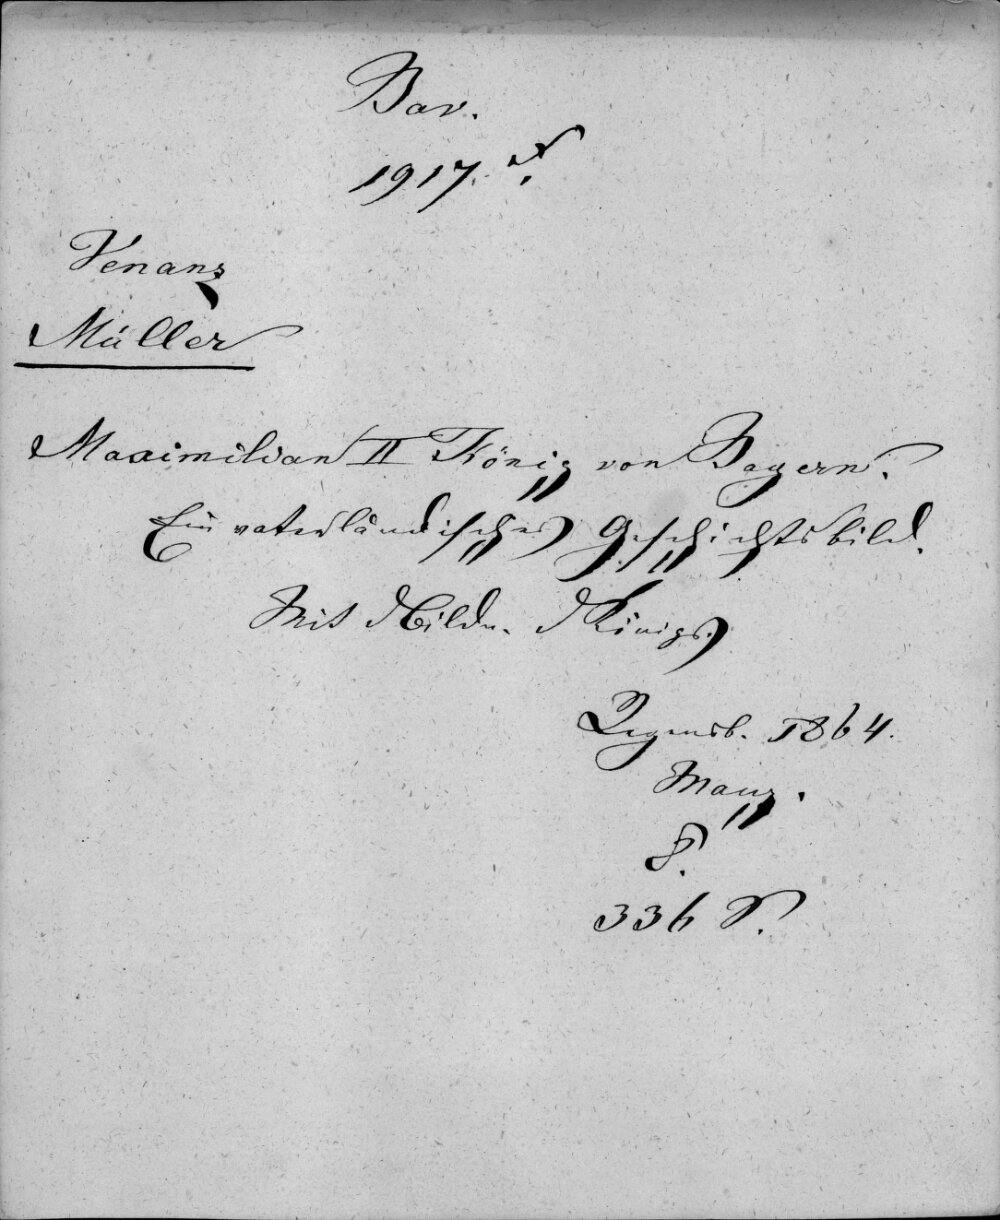 Bav.
1917.
Venanz
Müller
Maximilian II König von Bayern.
Ein vaterländisches Geschichtsbild.
Mit d Bildn. d Königs.
Regensb. 1864.
Manz.
8.
336 S.